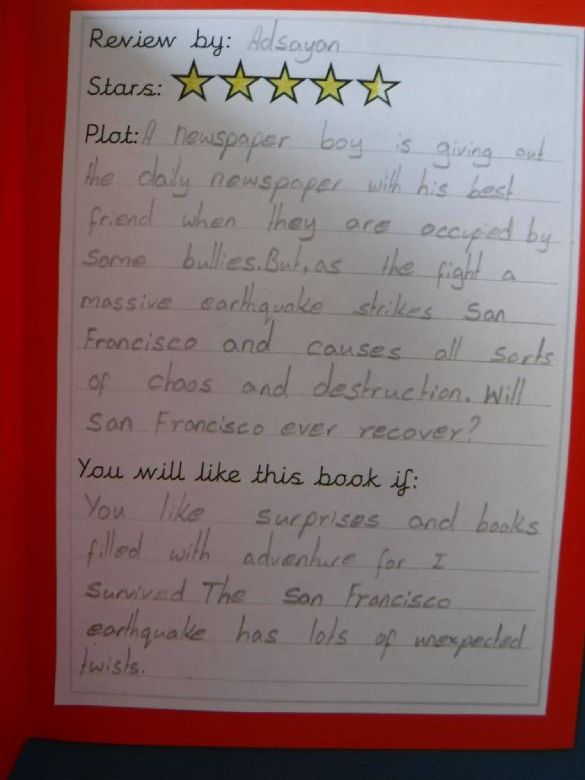 Review by: Adsayan
Stars:
Plot: A newspaper boy is giving out
the daily newspaper with his best
friend when they are occupied by
some bullies. But, as the fight a
massive earthquake strikes San
Francisco and causes all sorts
of chaos and destruction. Will
San Francisco ever recover?
You will like this book if:
You like surprises and books
filled with adventure for I
Survived The San Francisco
earthquake has lots of unexpected
twists.